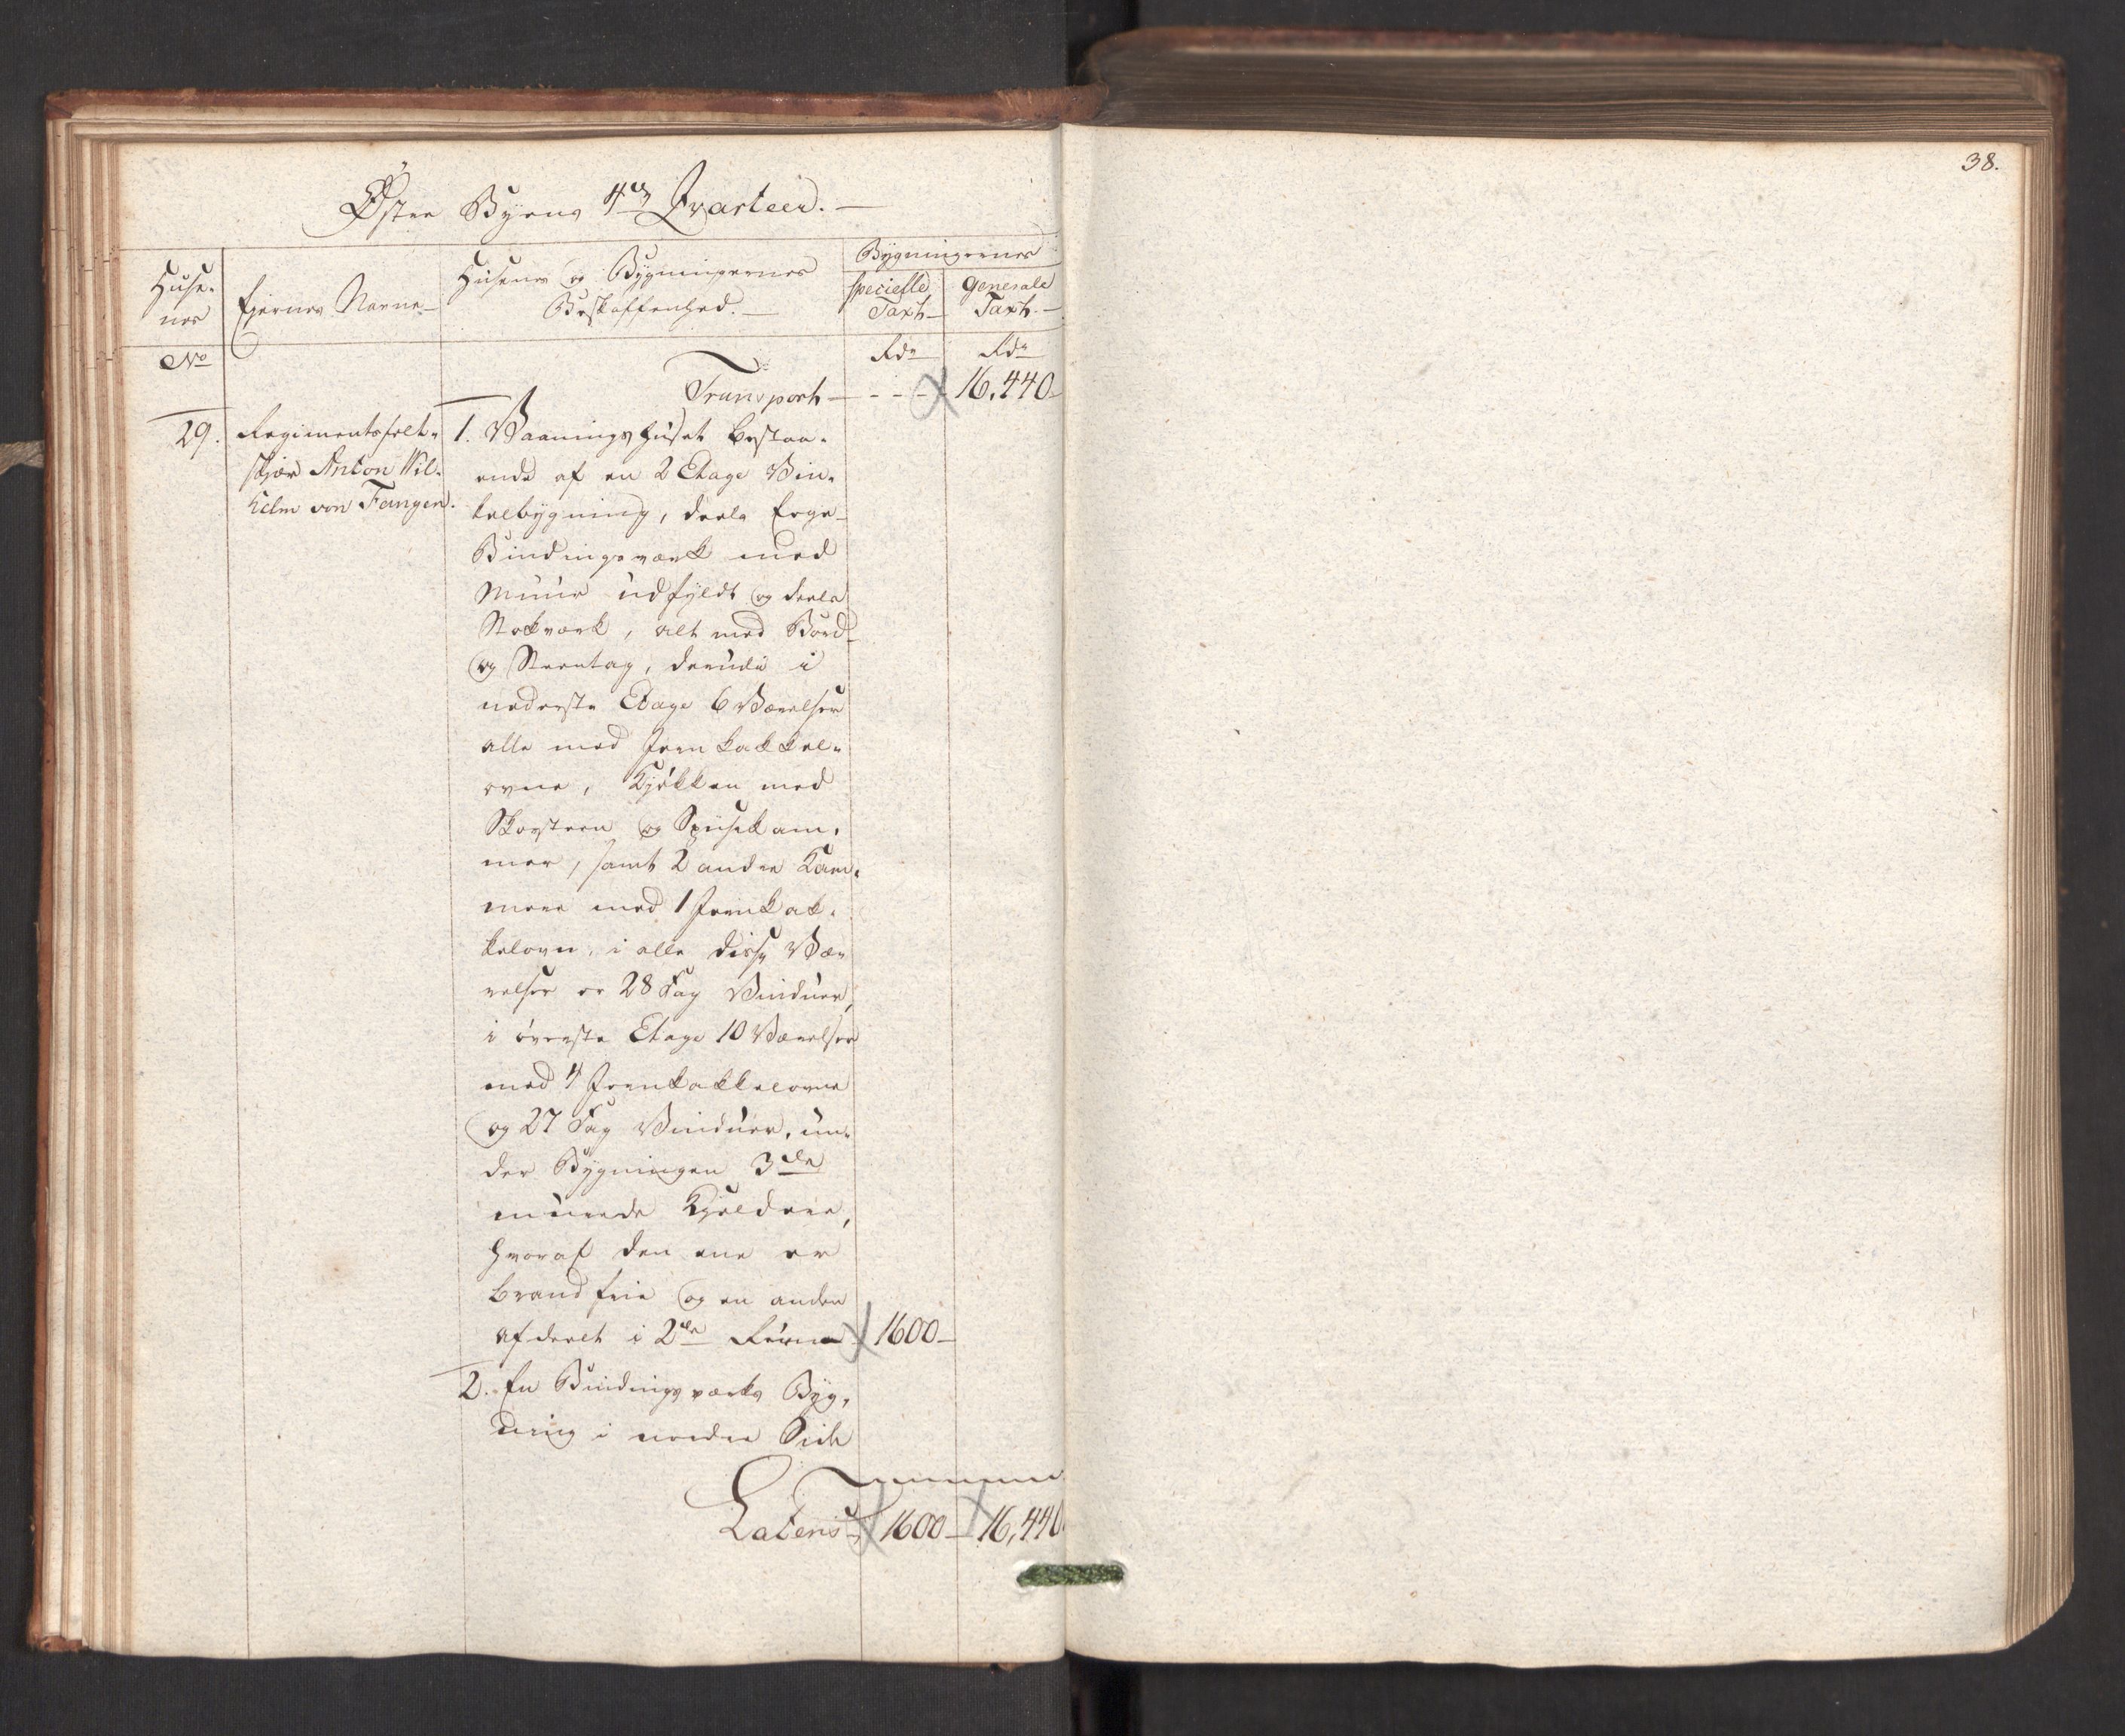 38.
Østre Byens 4de Qvarteer. —
Huse-
nes
Eyernes Navne
Husenes og Bygningernes
Beskaffenhed. —
Bygningernes
specielle
Taxt
generale
Taxt. —
No
Rdr
Rdr
Transport — - - - 16,440
29.
Regimentsfelt-
skjær Anton Wil-
helm von Fangen.
1. Vaaningshuset bestaa-
ende af en 2 Etage Vin-
kelbygning, deels Ege
Bindingsværk med
Muur udfyldt og deels
Stokværk, alt med Bord
og Steentag, derudi i
nederste Etage 6 Værelser
alle med Jern kakkel-
ovne, Kjøkken med
Skorsteen og Spiisekam-
mer, samt 2 andre Kam-
mere med 1 Jernkak-
kelovn, i alle disse Væ-
relser er 28 Fag Vinduer,
i øverste Etage 10 Værelser
med 4 Jernkakkelovne
og 27 Fag Vinduer, un-
der Bygningen 3de
murede Kjeldere,
hvoraf den ene er
brandfrie og en anden
afdeelt i 2de Rum 1600 —
2. En Bindingsværks Byg-
ning i nordre Side
Latens 1600 — 16,440